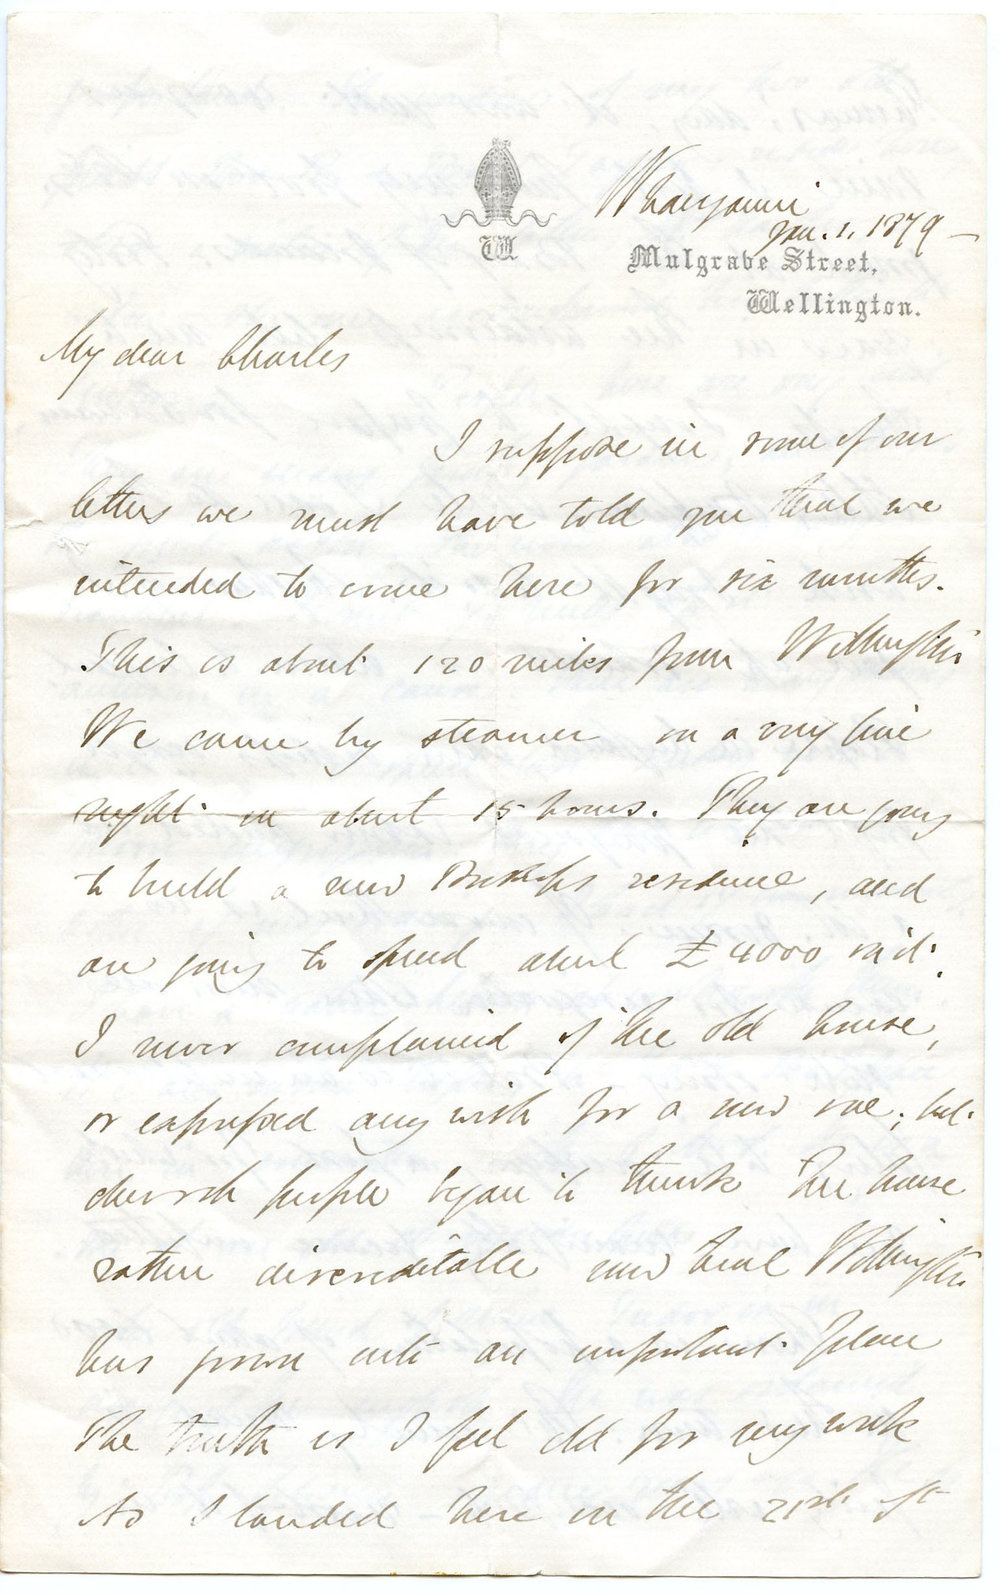 W
Whanganui
Jan. 1. 1879 —
Mulgrave Street,
Wellington.
My dear Charles
I suppose in some of our
letters we must have told you that we
intended to come here for six months.
This is about 120 miles from Wellington
We came by steamer on a very fine
night in about 15 hours. They are going
to build a new Bishop's residence, and
are going to spend about £4000 in it.
I never complained of the old house,
or expressed any wish for a new one; but
church people began to think the house
rather discreditable now that Wellington
has grown into an important place
The truth is I feel old for my work
As I landed here on the 21st of